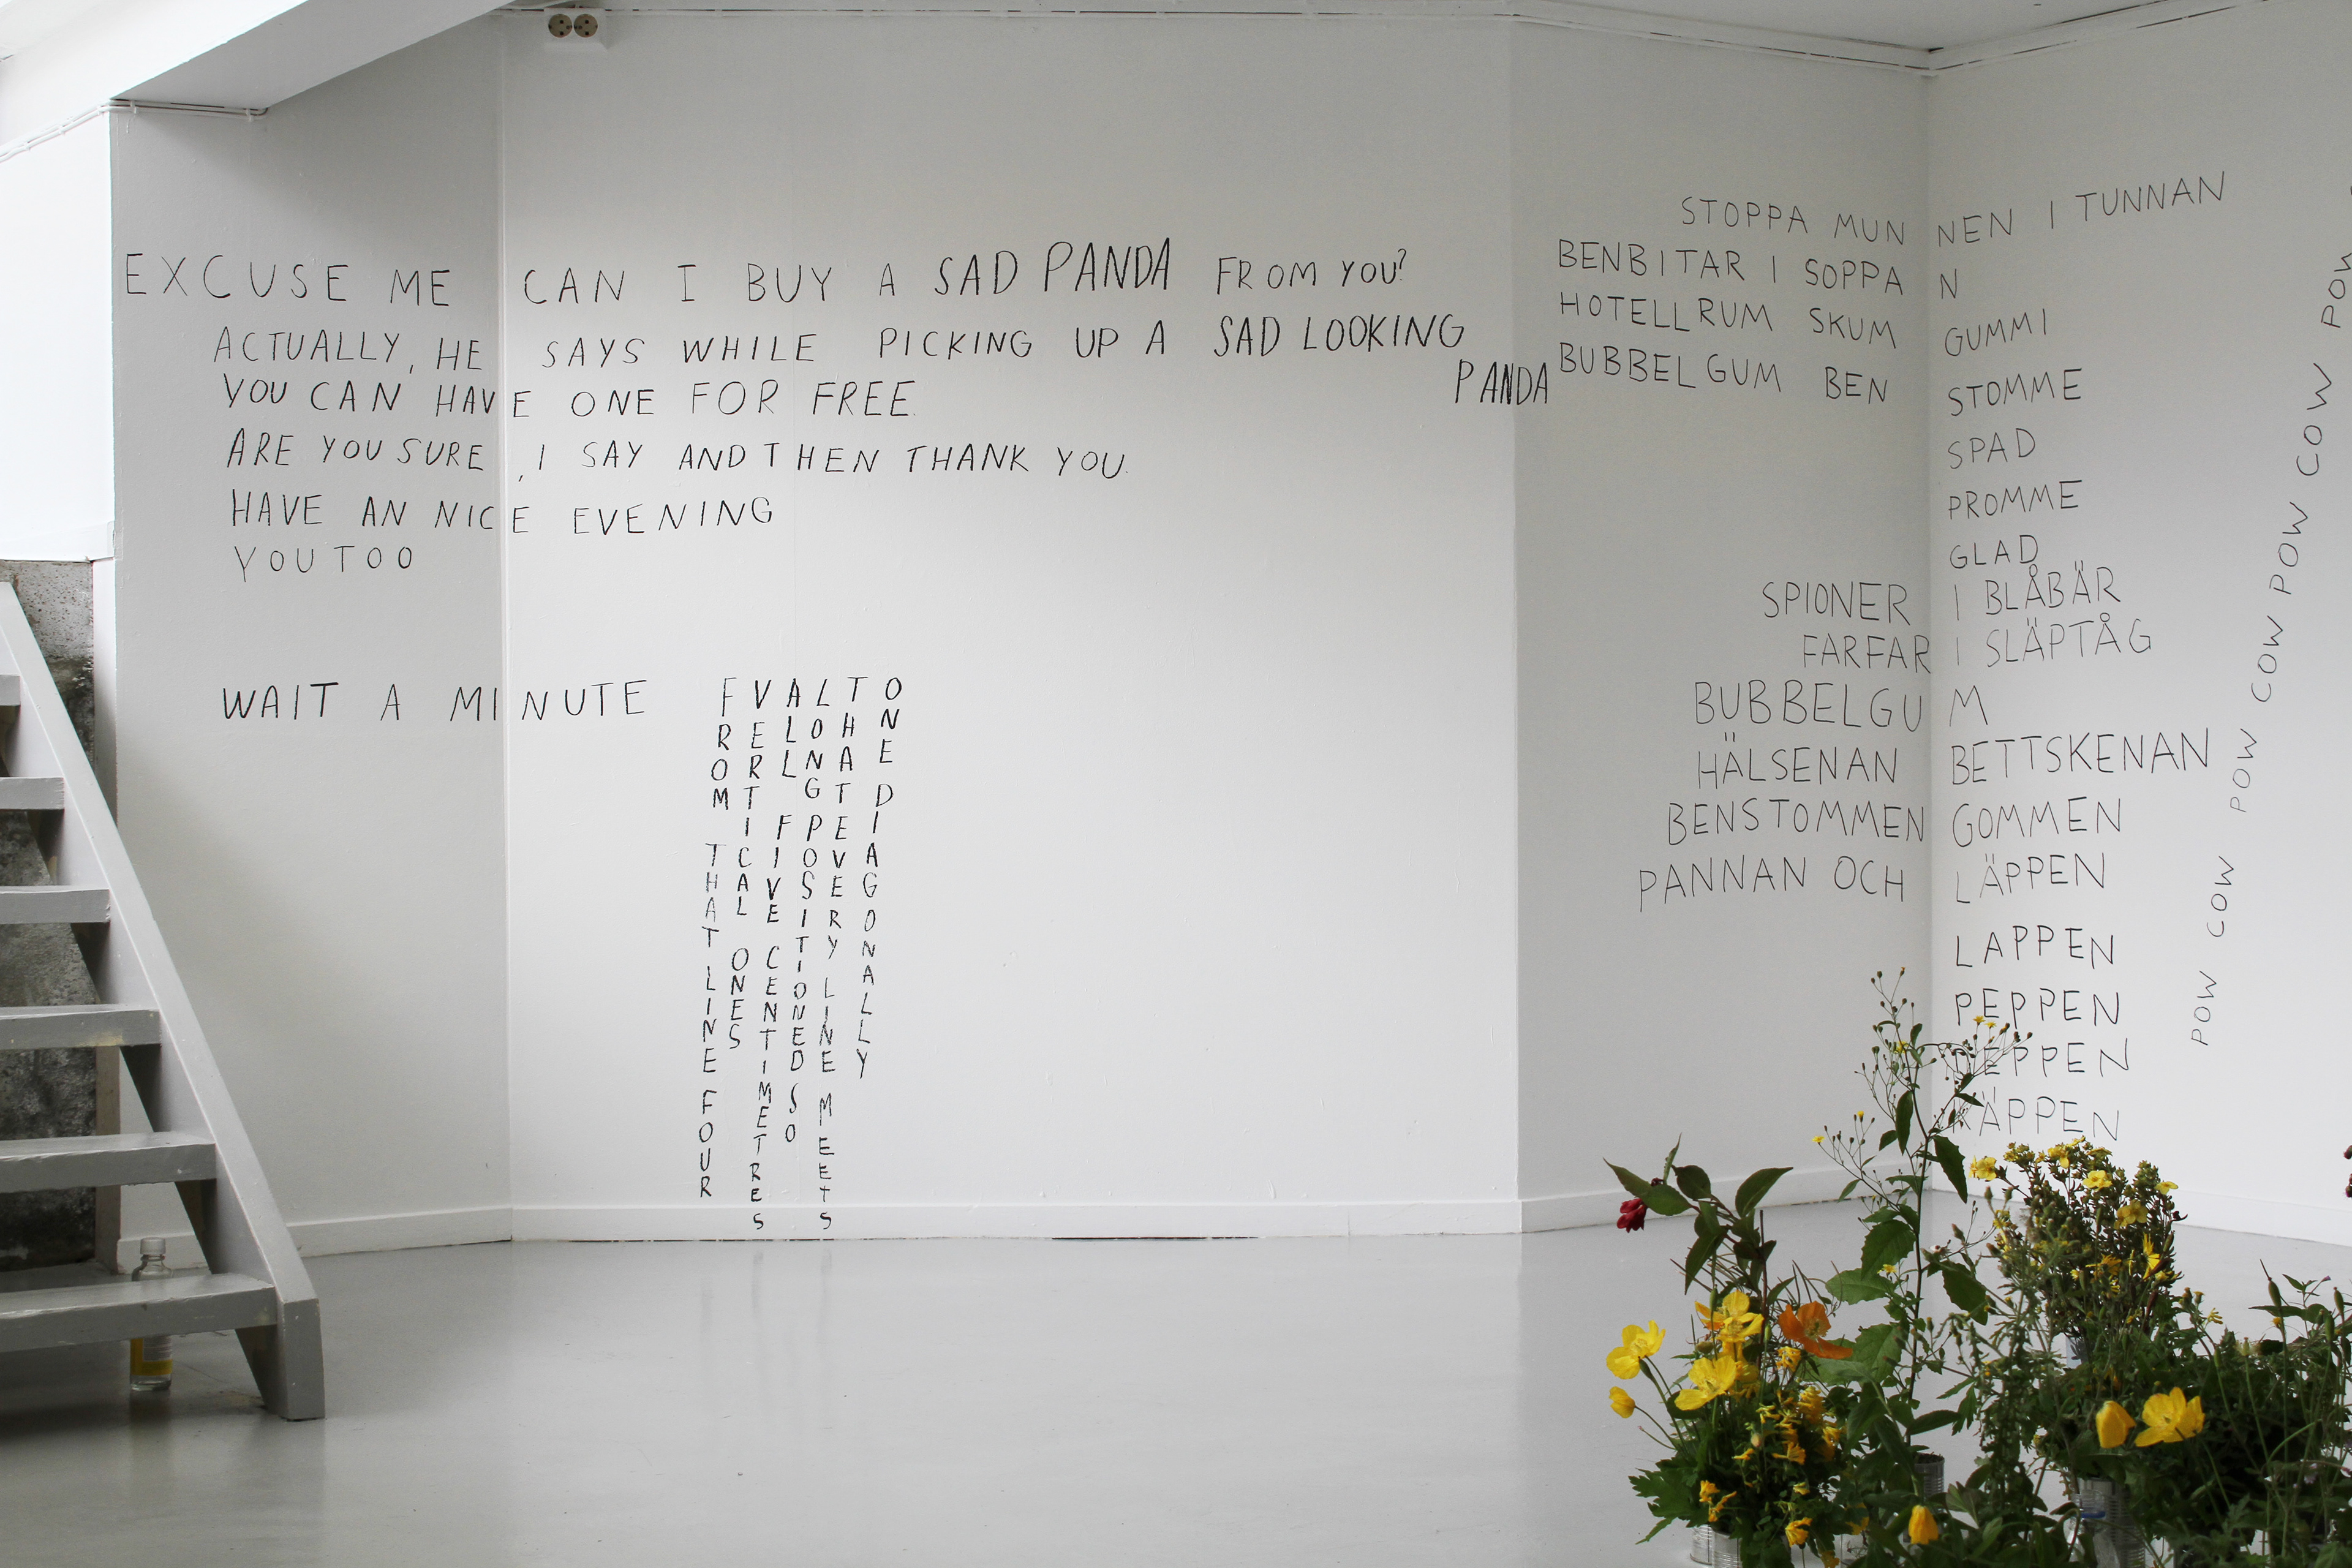 EXCUSE ME CAN I BUY A SAD PANDA FROM YOU?
ACTUALLY, HE SAYS WHILE PICKING UP A SAD LOOKING
PANDA
YOU CAN HAVE ONE FOR FREE.
ARE YOU SURE, I SAY AND THEN THANK YOU.
HAVE AN NICE EVENING
YOU TOO
WAIT A MINUTE
FROM THAT LINE FOUR
VERTICAL ONES
ALL FIVE CENTIMETRES
LONG POSITIONED SO
THAT EVERY LINE MEETS
ONE DIAGONALLY
STOPPA MUNNEN I TUNNAN
BENBITAR I SOPPAN
HOTELLRUM SKUMGUMMI
BUBBELGUM BENSTOMME
SPAD
PROMME
GLAD
SPIONER I BLÅBÄR
FARFAR I SLÄPTÅG
BUBBELGUM
HÄLSENAN BETTSKENAN
BENSTOMMEN GOMMEN
PANNAN OCH LÄPPEN
LAPPEN
PEPPEN
KÄPPEN
POW COW POW COW POW COW POW COW POW